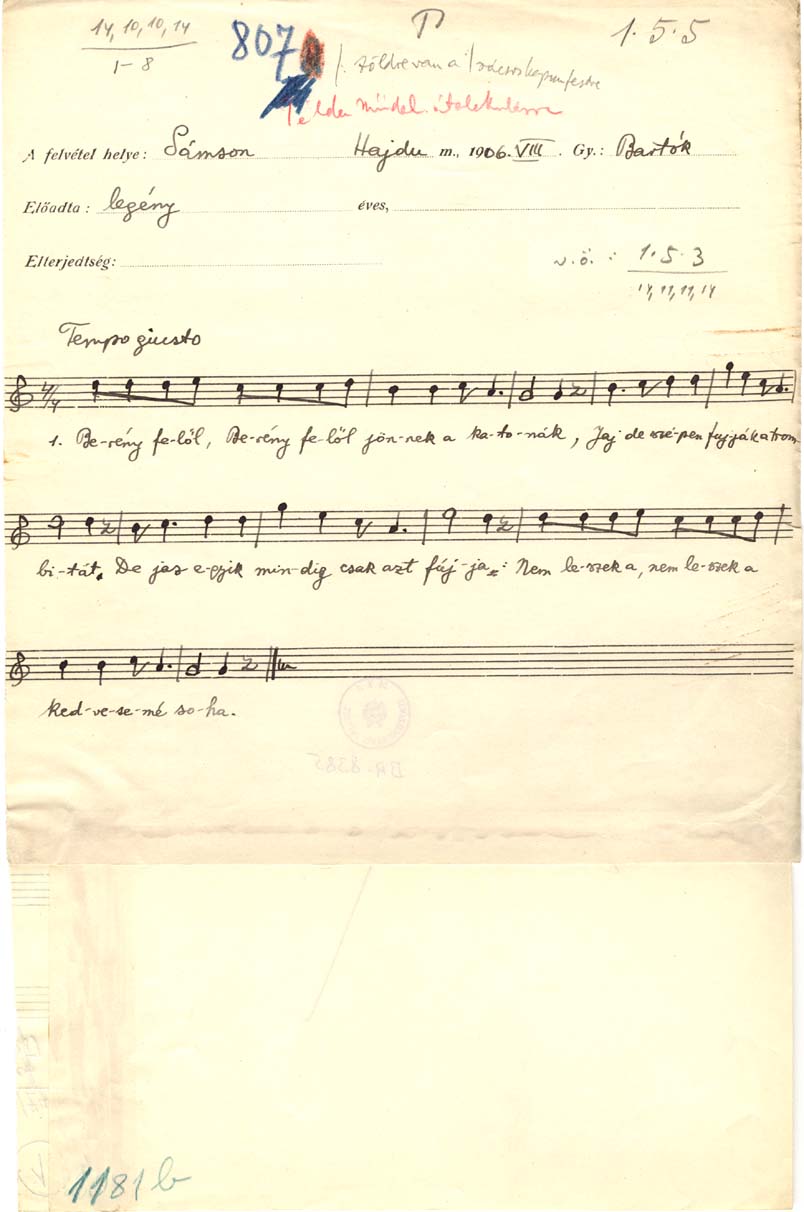 14, 10, 10, 14
1-8
807
P
1. 5. 5
zöldre van a rácsos kapu festve
Példa
A felvétel helye: Sámson Hajdu m., 1906. VIII. Gy.: Bartók
Előadta: legény éves,
Elterjedtség:
v.ö.: 1. 5. 3
14, 11, 11, 14
Tempo giusto
4/4
1. Be-rény fe-lől, Be-rény fe-lől jön-nek a ka-to-nák, Jaj de szé-pen fujják a trom
bi-tát. De jaz e-gyik min-dig csak azt fúj-ja: Nem le-szek a, nem le-szek a
ked-ve-se-mé so-ha.
BR-8385
1181 b